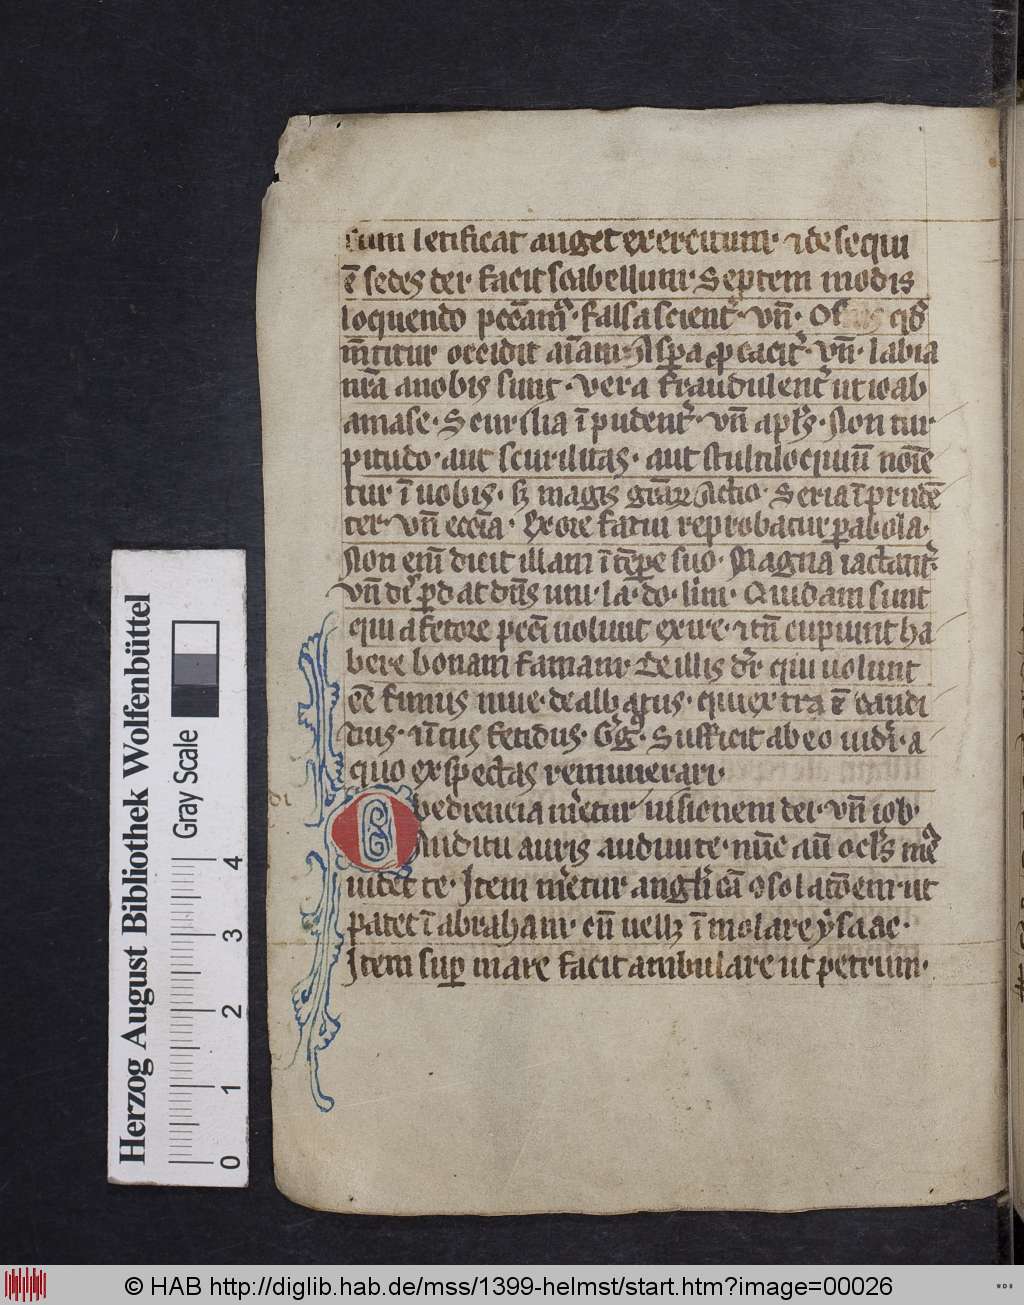 sum letificat auget exercitum · ⁊ de sequi
ē sedes dei · facit scabellum · Septem modis
loquendo pcc̄am᷒ · falsa scient᷑ · vn̄ · Os qd̓
m̄titur occidit aīam · Aspera ꝓcacit᷑ · vn̄ · labia
nr̄a a nobis sunt · vera fraudulent᷑ ut ioab
amase · Scurilia īpudent᷑ · vn̄ apl̓s · Non tur
pitudo · aut scurilitas · aut stultiloquiū noīe
tur ī uobis · sꝫ magis gr̄aꝝ actio · Seria īprudē
ter · vn̄ ecc̄ia · Ex ore fatui reprobatur parabola ·
Non enī dicit illam ī tēpe suo · Magna iactant᷑
vn̄ dr̄ ꝑdat dn̄s uni · la · do · lin · Quidam sunt
qui a fetore pcc̄i uolunt exire · ⁊ tn̄ cupiunt ha
bere bonam famam · De illis dr̄ qui uolunt
eē fimus niue · dealbatus · qui extra ē candi
dus · īt᷑us fetidus · Gg̓ · Sufficit ab eo uid̓i · a
quo expectas remunerari ·
Obediencia m̓etur uisionem dei · vn̄ iob ·
Auditu auris audiui te · nūc aū ocl̓s m̓e᷒
uidet te · Item m̓etur angl̓icā ꝯsolatōem ut
patet ī abraham · cū uellꝫ īmolare ẏsaac ·
Item suꝑ mare facit ambulare ut petrum ·
di
Herzog August Bibliothek Wolfenbüttel
Gray Scale
0 1 2 3 4
© HAB http://diglib.hab.de/mss/1399-helmst/start.htm?image=00026